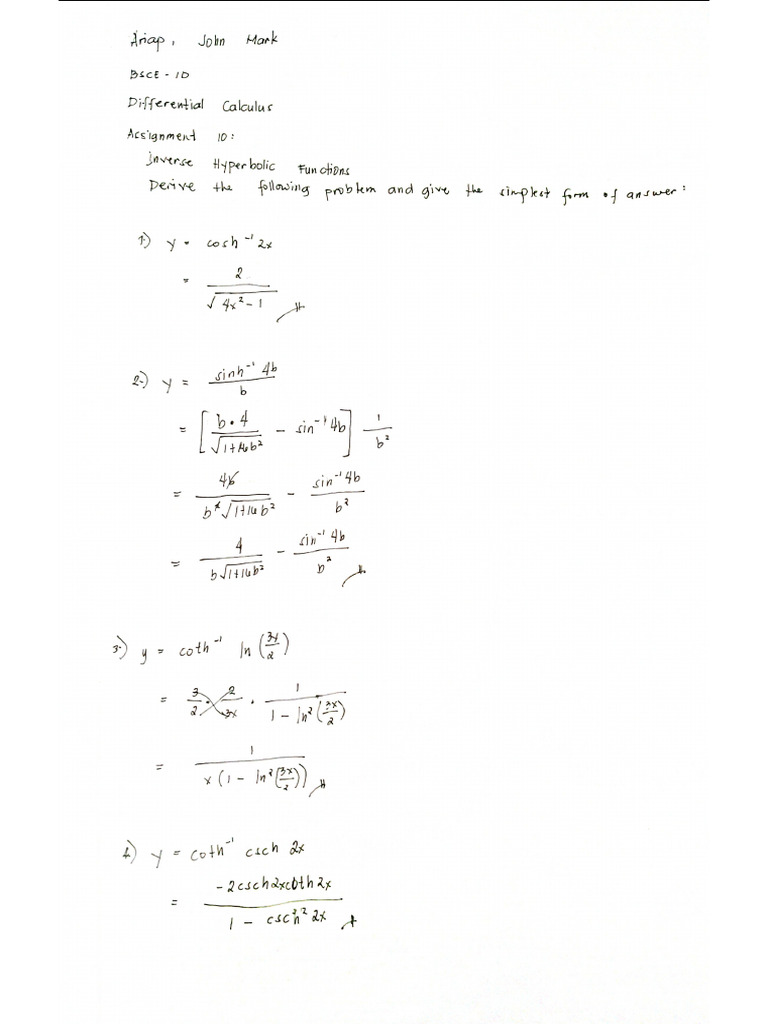 Ariap, John Mark
BSCE - 1D
Differential Calculus
Assignment 10:
Inverse Hyperbolic Functions
Derive the following problem and give the simplest form of answer:
1.) y = cosh⁻¹ 2x
= 2 / √(4x² - 1)
2.) y = sinh⁻¹ 4b / b
= [ b • 4 / √(1+16b²) - sin⁻¹ 4b ] 1 / b²
= 4b / b² √(1+16b²) - sin⁻¹ 4b / b²
= 4 / b√(1+16b²) - sin⁻¹ 4b / b²
3.) y = coth⁻¹ ln (3x/2)
= 3/2 • 2/3x • 1 / 1 - ln² (3x/2)
= 1 / x (1 - ln² (3x/2))
4.) y = coth⁻¹ csch 2x
= -2 csch 2x coth 2x / 1 - csch² 2x